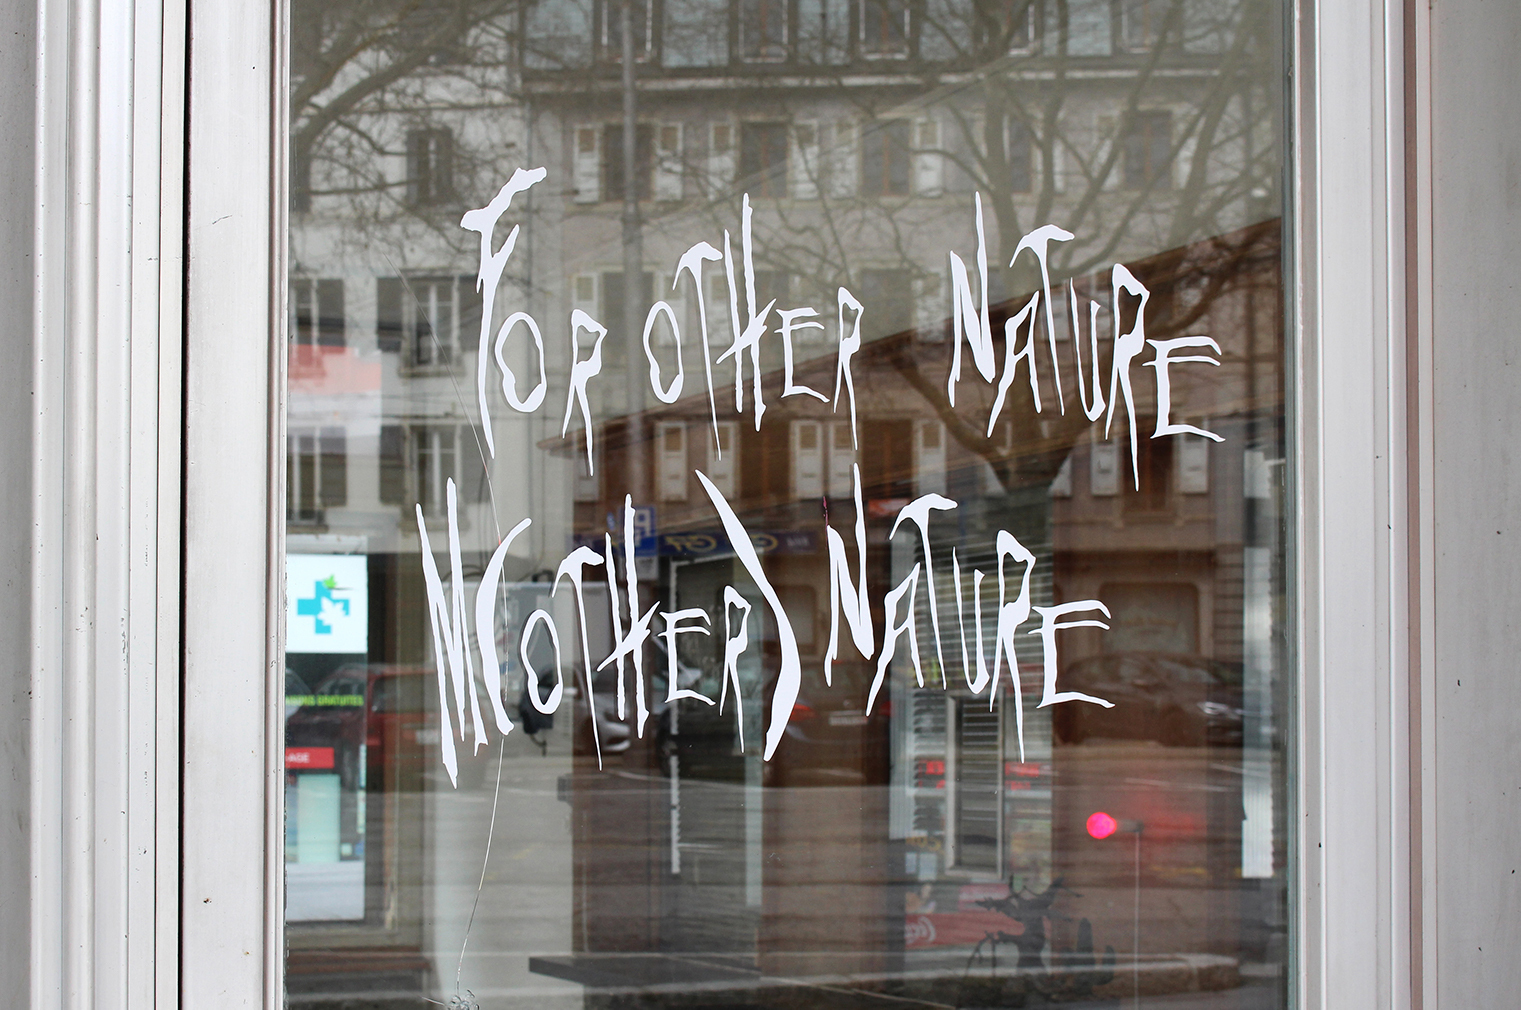 FOR OTHER NATURE
M(OTHER) NATURE